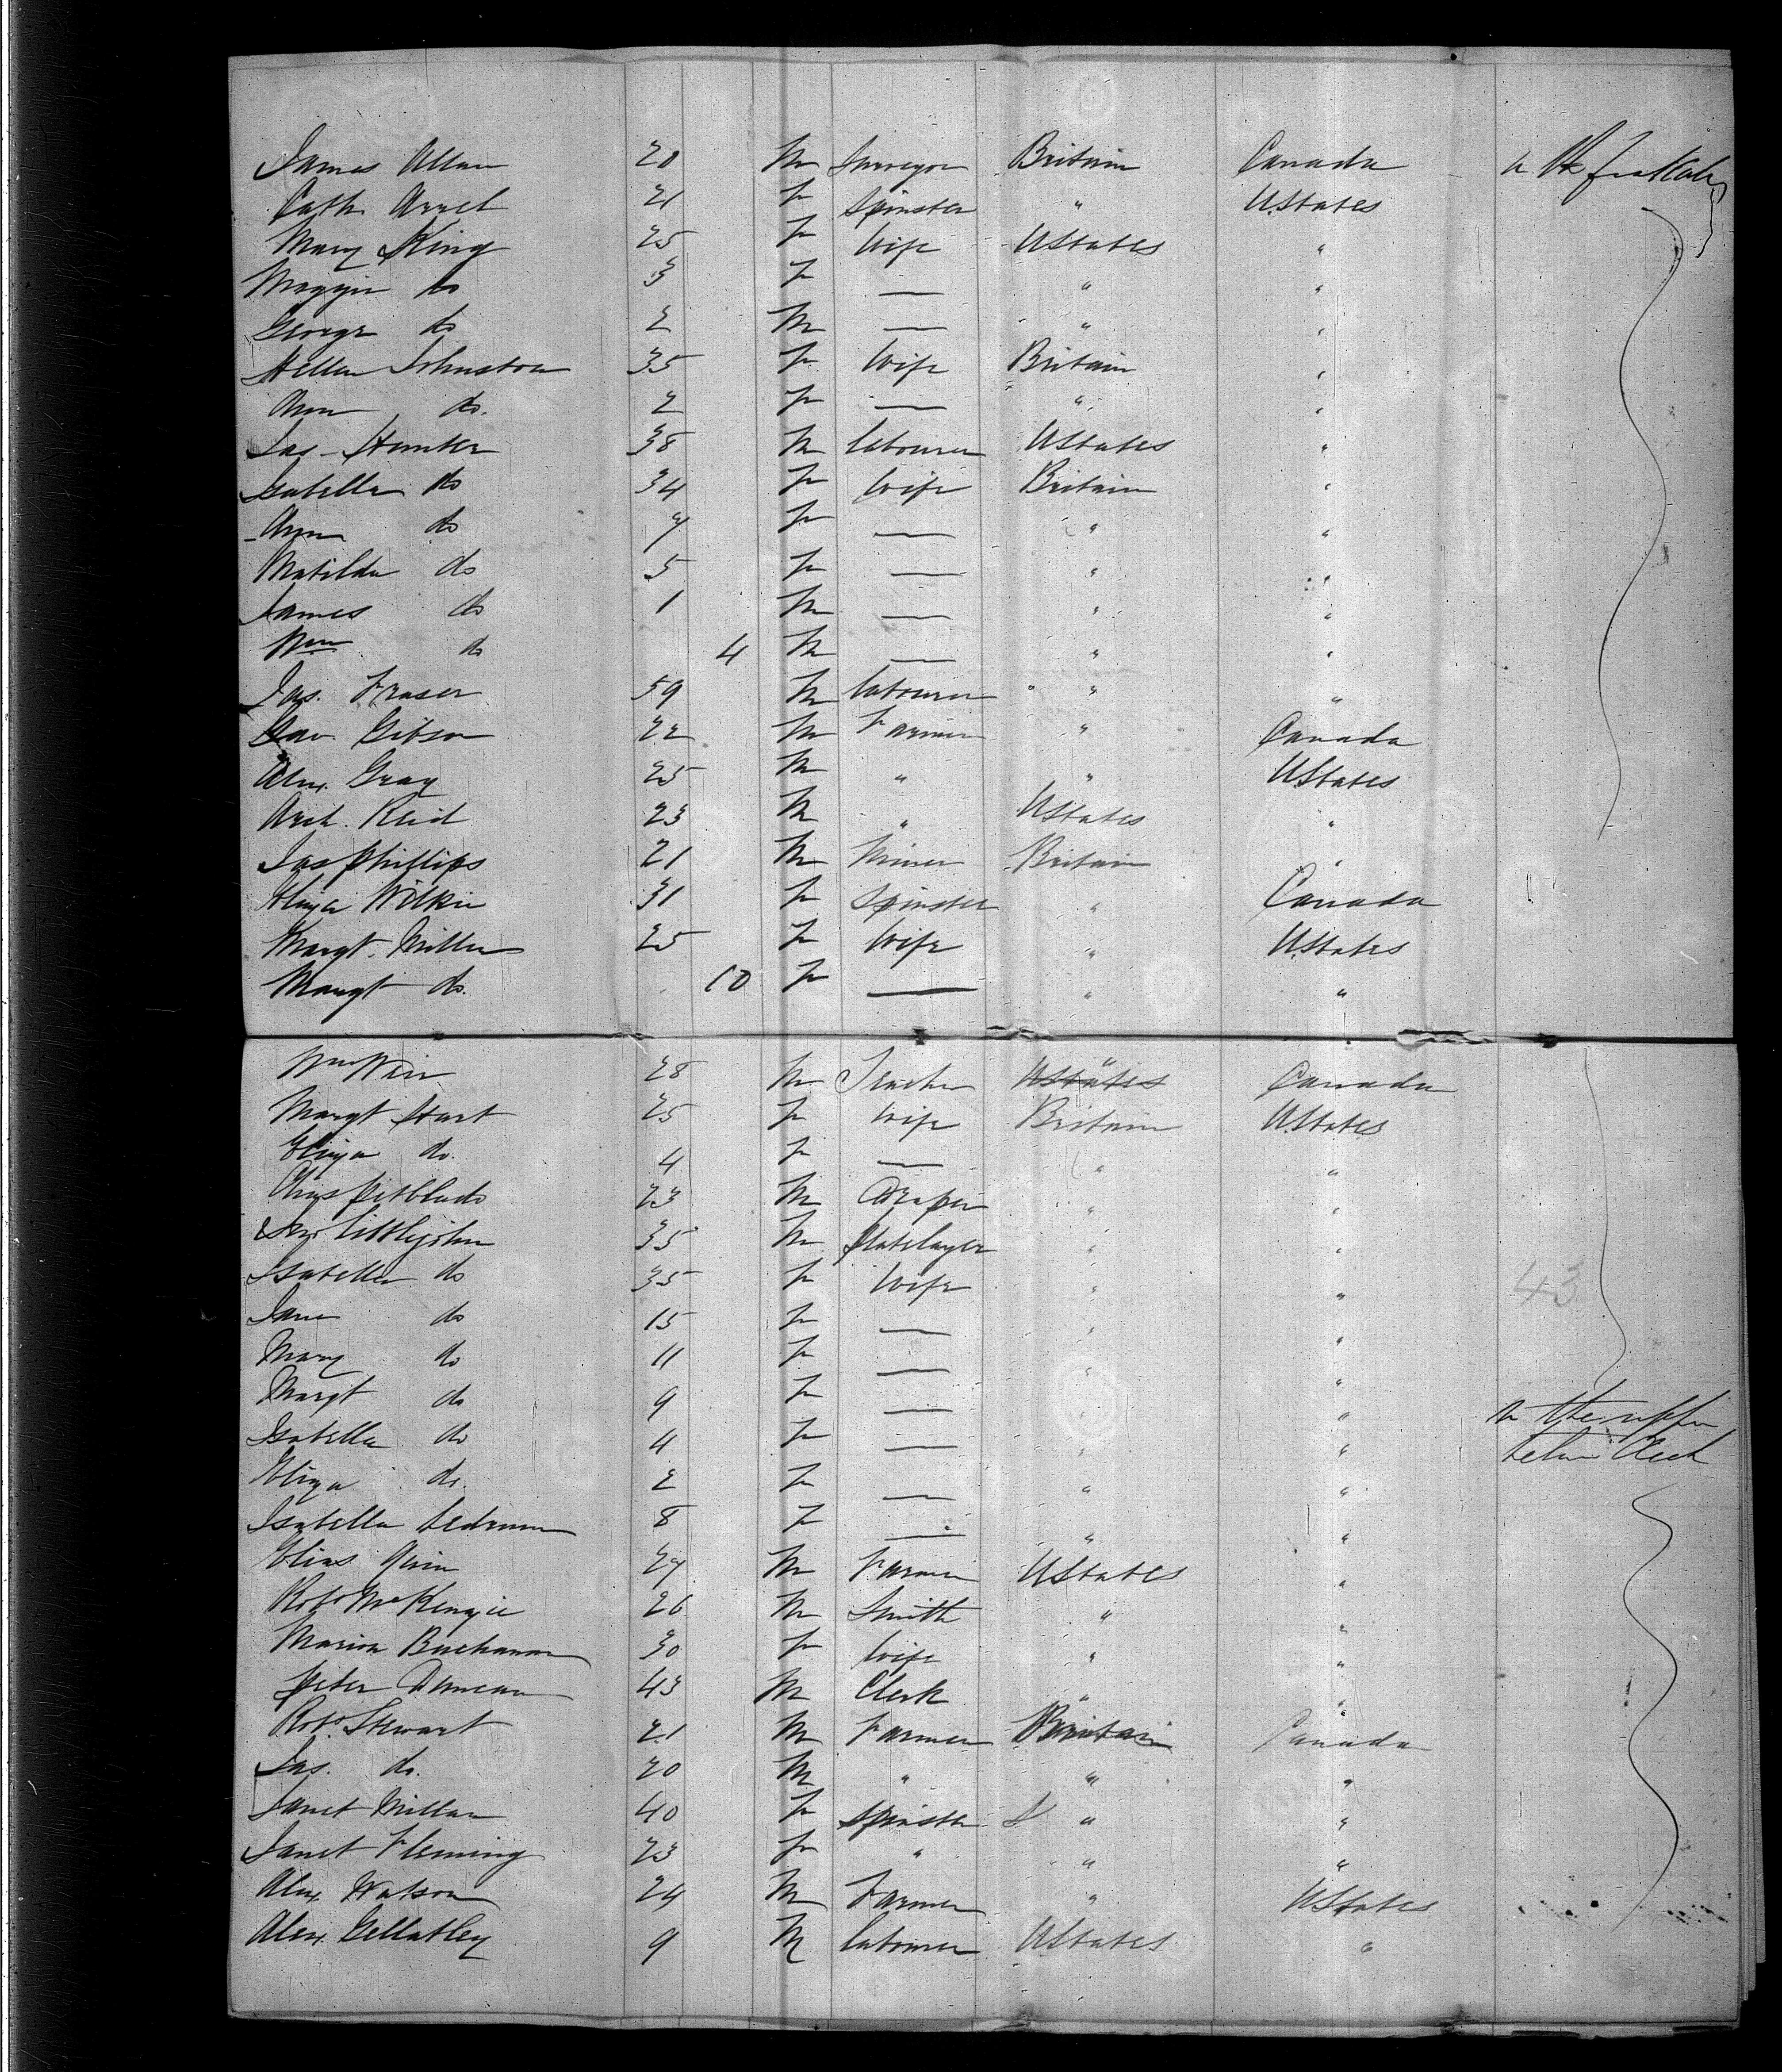 James Allan 20 M Surveyor Britain Canada in the
Cath. 21 F Spinster " UStates
Mary King 25 F Wife UStates "
Maggie do 3 F — " "
George do 2 M — " "
Hellen Johnston 35 F Wife Britain "
Ann do. 2 F — " "
Jas Hunter 38 M labourer UStates "
Isabella do 34 F Wife Britain "
Ann do 7 F — " "
Matilda do 5 F — " "
James do 1 M — " "
Wm do 4 M — " "
Jas. Fraser 59 M labourer " " "
Gav. Gibson 22 M Farmer " Canada
Alex. Gray 25 M " " UStates
Arch. Reid 23 M " UStates "
Jas Phillips 21 M Miner Britain "
Eliza Wilkie 31 F Spinster " Canada
Margt. Miller 25 F Wife " UStates
Margt do. 10 F — " "
Wm Weir 28 M Teacher UStates " Canada
Margt Hart 25 F Wife Britain UStates
Eliza do. 4 F — " "
Chas Pitblado 23 M Draper " "
Littlejohn 35 M Platelayer " "
Isabella do 35 F Wife " "
43
Jane do 15 F — " "
Mary do 11 F — " "
Margt do 9 F — " " in the upper
Isabella do 4 F — " " between Deck
Eliza do. 2 F — " "
Isabella Ledrum 8 F — " "
Elias 27 M Farmer UStates "
Robt McKenzie 26 M Smith " "
Marion Buchanan 30 F Wife " "
Peter Duncan 43 M Clerk " "
Robt Stewart 21 M Farmer Britain " Canada
Jas. do. 20 M " " "
Janet Millar 40 F Spinster " "
Janet Fleming 23 F " " "
Alex Watson 24 M Farmer " UStates
Alex. Gellatley 9 M labourer UStates "